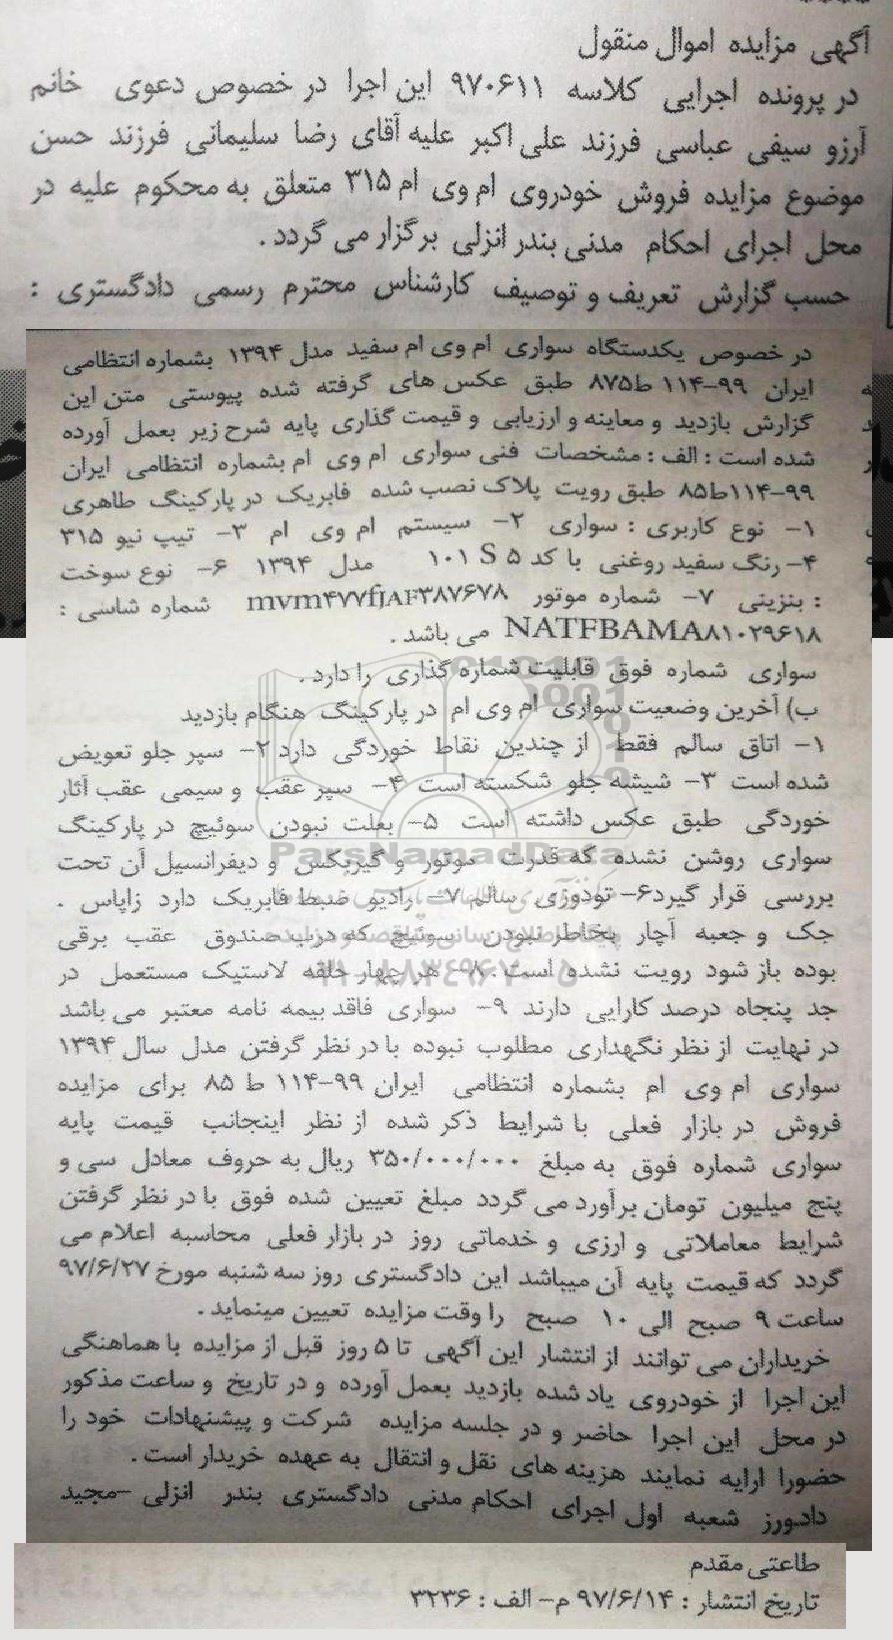 آگهی مزایده اموال منقول
در پرونده اجرایی کلاسه ۹۷۰۶۱۱ این اجرا در خصوص دعوی خانم
آرزو سیفی عباسی فرزند علی اکبر علیه آقای رضا سلیمانی فرزند حسن
موضوع مزایده فروش خودروی ام وی ام ۳۱۵ متعلق به محکوم علیه در
محل اجرای احکام مدنی بندر انزلی برگزار می گردد .
حسب گزارش تعریف و توصیف کارشناس محترم رسمی دادگستری :
در خصوص یکدستگاه سواری ام وی ام سفید مدل ۱۳۹۴ بشماره انتظامی
ایران ۹۹-۱۱۴ ط۸۷۵ طبق عکس های گرفته شده پیوستی متن این
گزارش بازدید و معاینه و ارزیابی و قیمت گذاری پایه شرح زیر بعمل آورده
شده است : الف : مشخصات فنی سواری ام وی ام بشماره انتظامی ایران
۹۹-۱۱۴ط۸۵ طبق رویت پلاک نصب شده فابریک در پارکینگ طاهری
۱- نوع کاربری : سواری ۲- سیستم ام وی ام ۳- تیپ نیو ۳۱۵
۴- رنگ سفید روغنی با کد ۵ S ۱۰۱ مدل ۱۳۹۴ ۶- نوع سوخت
: بنزینی ۷- شماره موتور mvm۴۷۷fJAF۳۸۷۶۷۸ شماره شاسی :
NATFBAMA۸۱۰۲۹۶۱۸ می باشد .
سواری شماره فوق قابلیت شماره گذاری را دارد .
ب) آخرین وضعیت سواری ام وی ام در پارکینگ هنگام بازدید
۱- اتاق سالم فقط از چندین نقاط خوردگی دارد ۲- سپر جلو تعویض
شده است ۳- شیشه جلو شکسته است ۴- سپر عقب و سیمی عقب آثار
خوردگی طبق عکس داشته است ۵- بعلت نبودن سوئیچ در پارکینگ
سواری روشن نشده که قدرت موتور و گیربکس و دیفرانسیل آن تحت
بررسی قرار گیرد۶- تودوزی سالم ۷- رادیو ضبط فابریک دارد زاپاس .
جک و جعبه آچار بخاطر نبودن سوئیچ که درب صندوق عقب برقی
بوده باز شود رویت نشده است . ۸- هر چهار حلقه لاستیک مستعمل در
حد پنجاه درصد کارایی دارند ۹- سواری فاقد بیمه نامه معتبر می باشد
در نهایت از نظر نگهداری مطلوب نبوده با در نظر گرفتن مدل سال ۱۳۹۴
سواری ام وی ام بشماره انتظامی ایران ۹۹-۱۱۴ ط ۸۵ برای مزایده
فروش در بازار فعلی با شرایط ذکر شده از نظر اینجانب قیمت پایه
سواری شماره فوق به مبلغ ۳۵۰/۰۰۰/۰۰۰ ریال به حروف معادل سی و
پنج میلیون تومان برآورد می گردد مبلغ تعیین شده فوق با در نظر گرفتن
شرایط معاملاتی و ارزی و خدماتی روز در بازار فعلی محاسبه اعلام می
گردد که قیمت پایه آن میباشد این دادگستری روز سه شنبه مورخ ۹۷/۶/۲۷
ساعت ۹ صبح الی ۱۰ صبح را وقت مزایده تعیین مینماید .
خریداران می توانند از انتشار این آگهی تا ۵ روز قبل از مزایده با هماهنگی
این اجرا از خودروی یاد شده بازدید بعمل آورده و در تاریخ و ساعت مذکور
در محل این اجرا حاضر و در جلسه مزایده شرکت و پیشنهادات خود را
حضورا ارایه نمایند هزینه های نقل و انتقال به عهده خریدار است .
دادورز شعبه اول اجرای احکام مدنی دادگستری بندر انزلی -مجید
طاعتی مقدم
تاریخ انتشار : ۹۷/۶/۱۴ م- الف : ۳۲۳۶
ParsNamadData